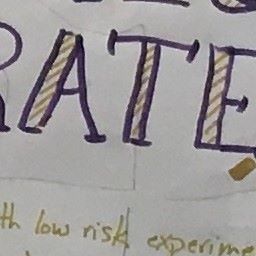 RATE
th low risk experime